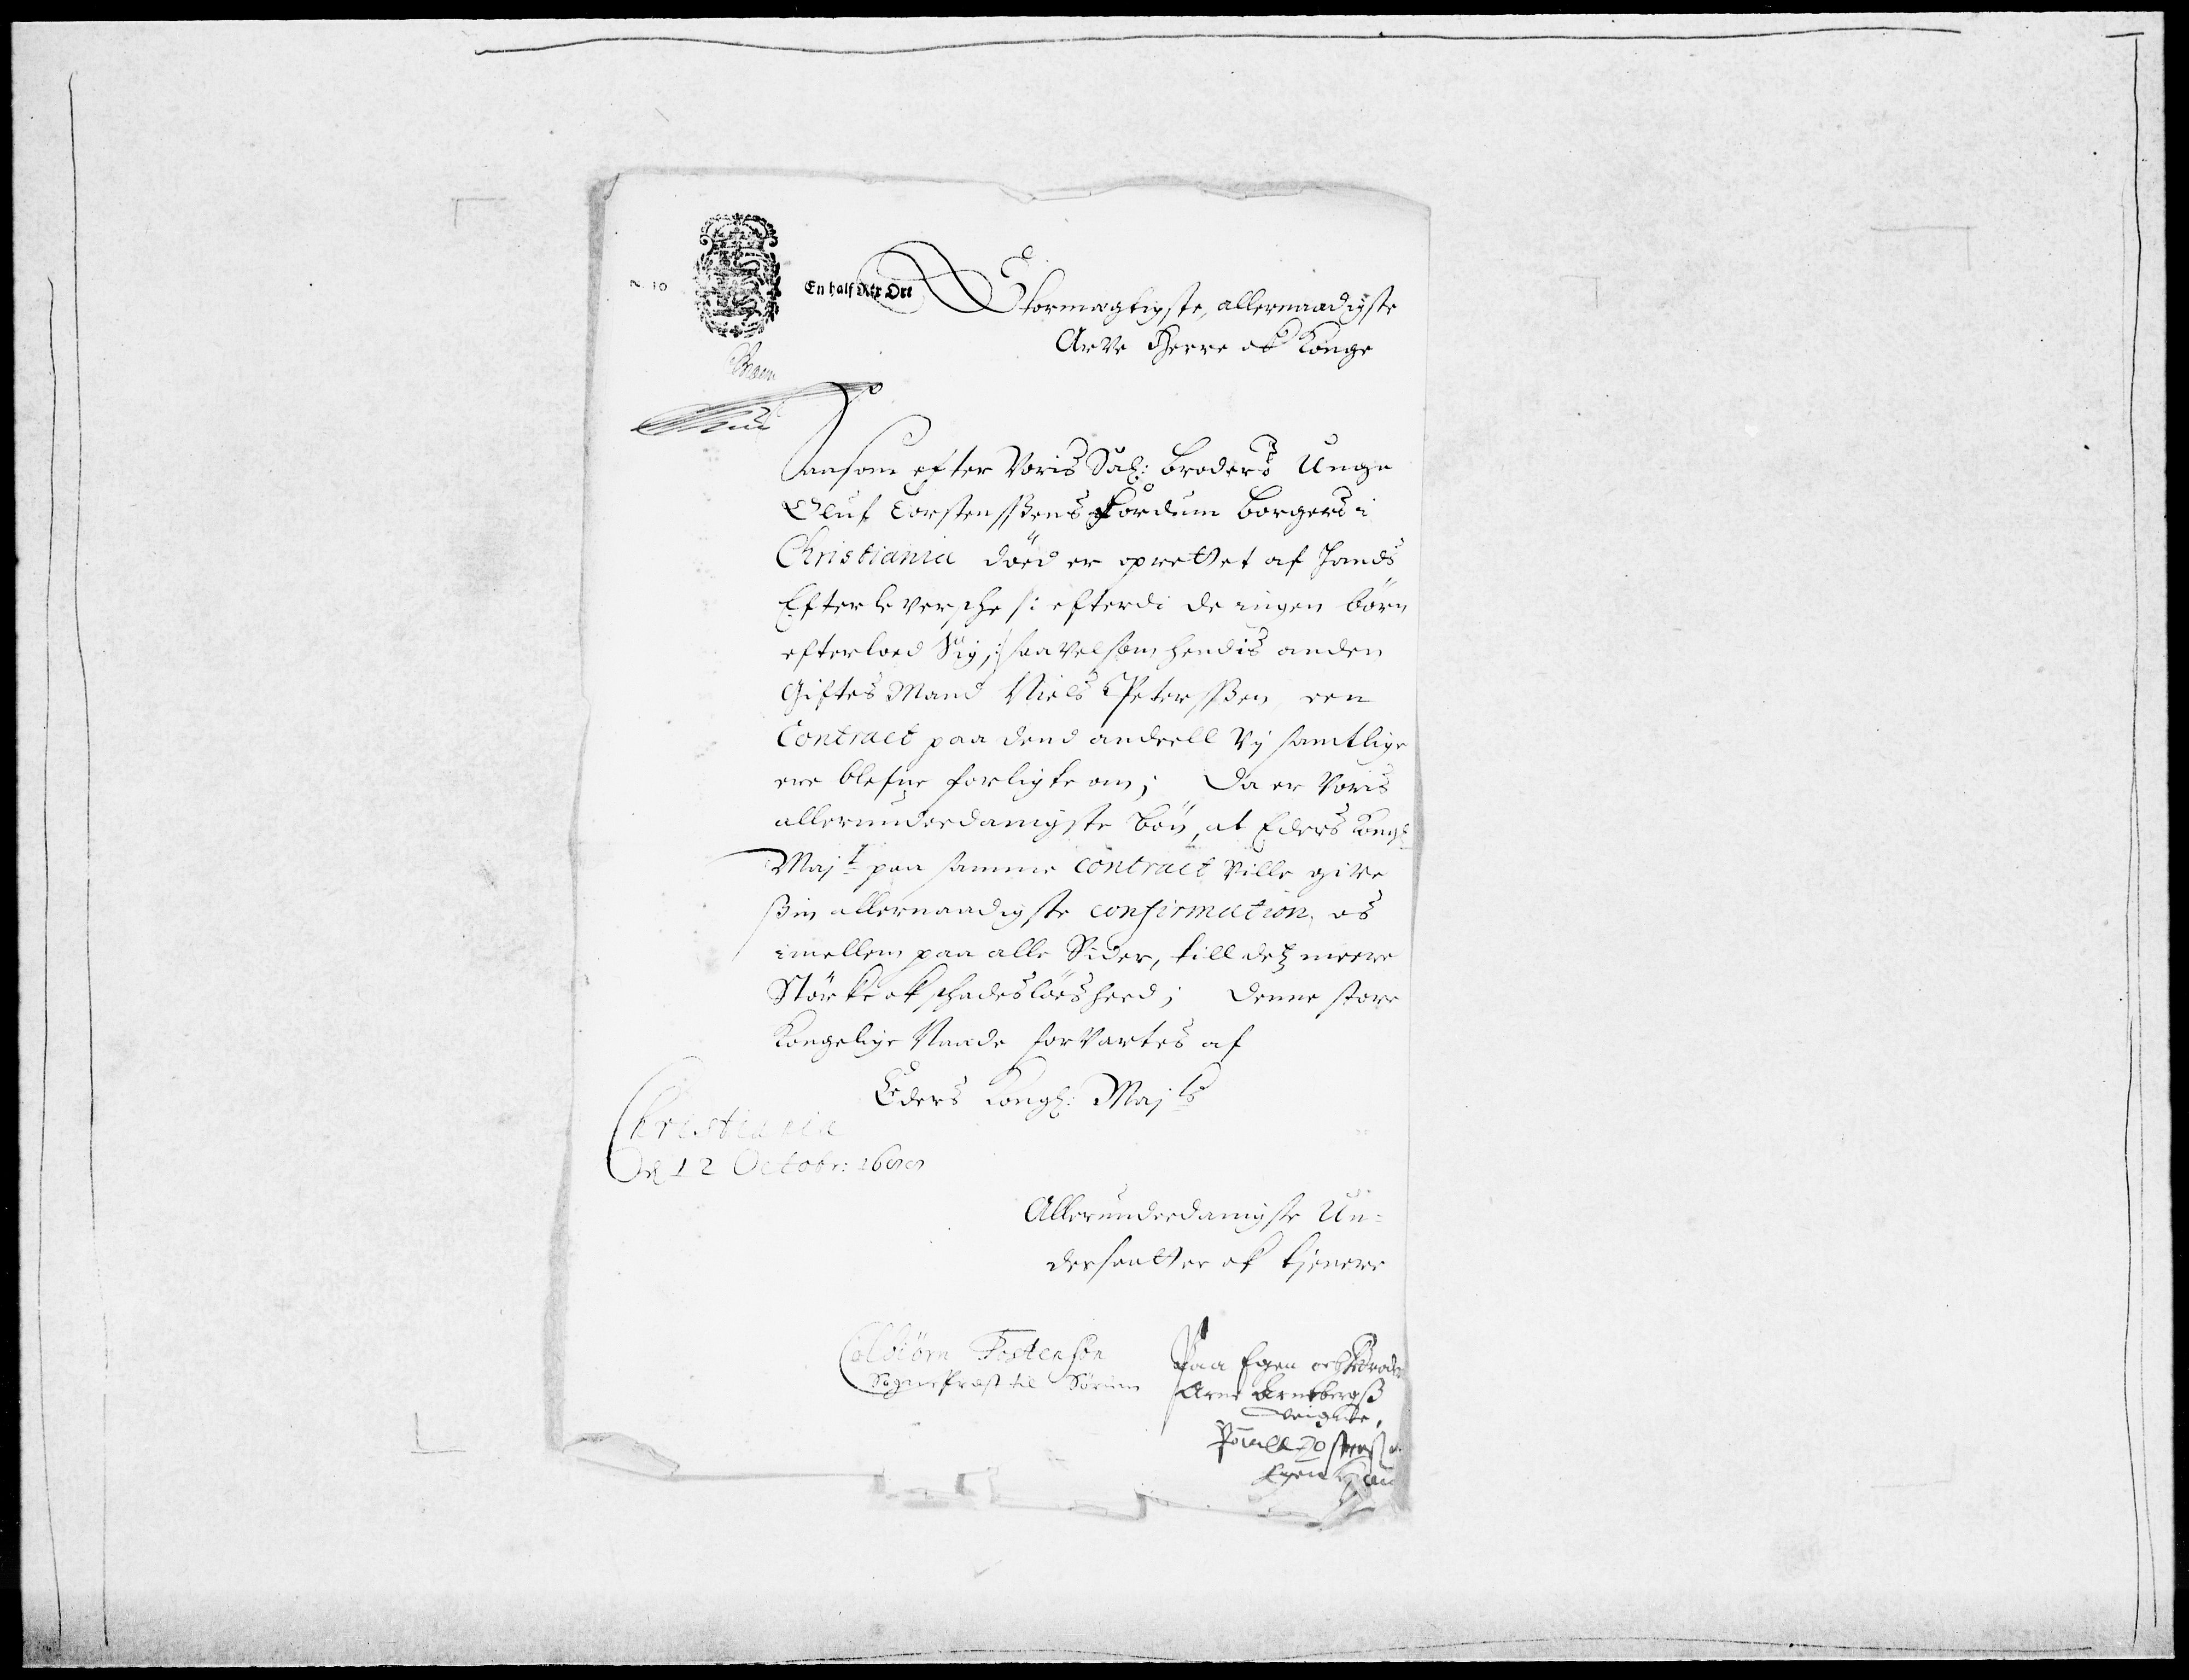 N. 10
En half Rix Ort
Stormægtigste, allernaadigste
Arve Herre ok Konge
Saasom efter Voris Sal: broders Unge
Oluf Torstenssens fordum borgers i
Christiania döed er oprettet af hands
Efterlefversche /: efterdi de ingen börn
efterloed Sig :/ saavelsom hendis anden
Giftes Mand Niels Peterssen een
Contract paa dend andeell Vy samtlige
ere blefne forligte om; Da er Voris
allerunderdanigste bön, at Eders Kongl
Majt paa samme contract Ville give
sin allernaadigste confirmation, os
imellem paa alle Sider, till detz meere
Störke ok schadeslöesheed; Denne store
Kongelige Naade forVartes af
Eders Kongl: Majts
Christiania
12 Octobr:
Allerunderdanigste Un-
dersaatter ok tjenere
Colbiörn Tostensön
Sogneprest til Sörum
Paa Egen
Arne